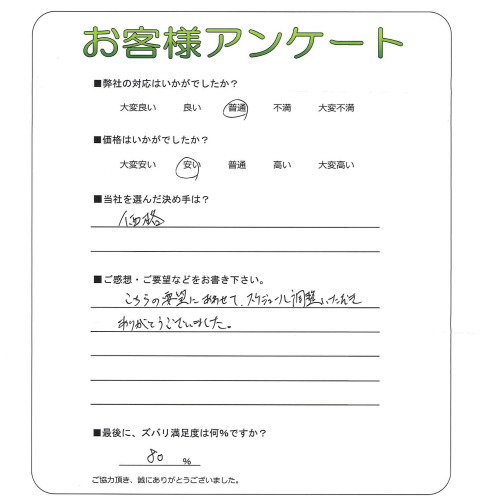 お客様アンケート
■弊社の対応はいかがでしたか?
大変良い 良い 普通 不満 大変不満
■価格はいかがでしたか?
大変安い 安い 普通 高い 大変高い
■当社を選んだ決め手は?
価格
■ご感想・ご要望などをお書き下さい。
こちらの要望にあわせて、スケジュール調整いただき
ありがとうございました。
■最後に、ズバリ満足度は何%ですか?
80 %
ご協力頂き、誠にありがとうございました。